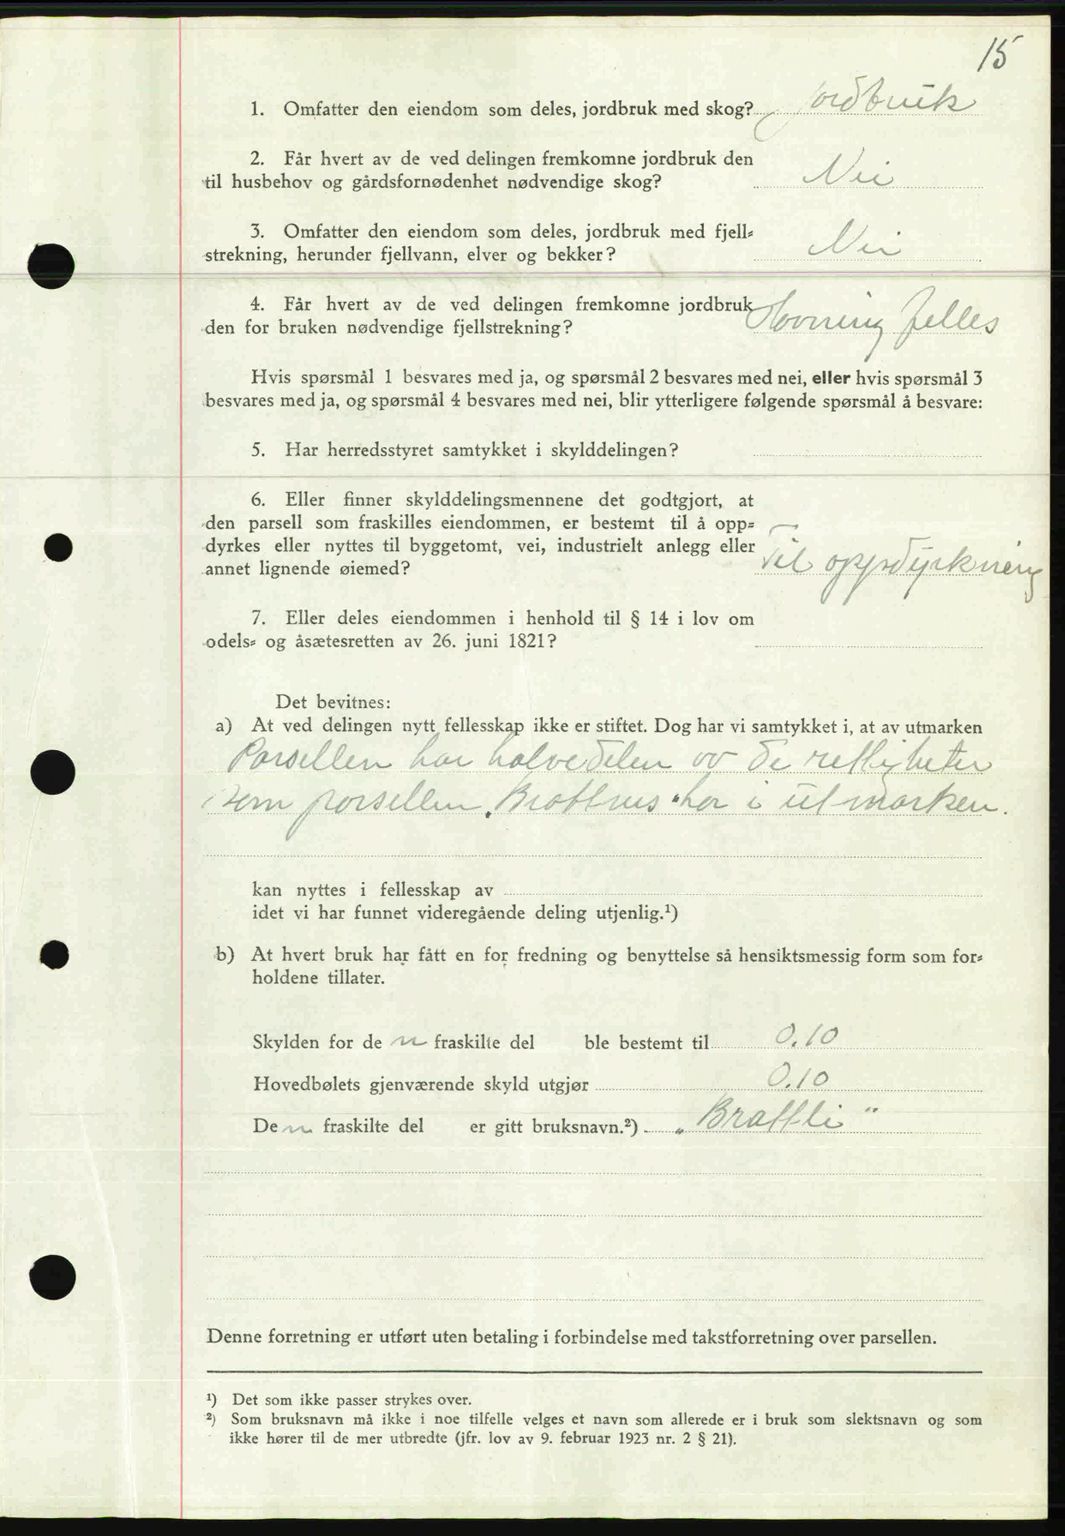 15
1. Omfatter den eiendom som deles, jordbruk med skog? Jordbruk
2. Får hvert av de ved delingen fremkomne jordbruk den
til husbehov og gårdsfornødenhet nødvendige skog? Nei
3. Omfatter den eiendom som deles, jordbruk med fjell=
strekning, herunder fjellvann, elver og bekker? Nei
4. Får hvert av de ved delingen fremkomne jordbruk
den for bruken nødvendige fjellstrekning? Havning felles
Hvis spørsmål 1 besvares med ja, og spørsmål 2 besvares med nei, eller hvis spørsmål 3
besvares med ja, og spørsmål 4 besvares med nei, blir ytterligere følgende spørsmål å besvare:
5. Har herredsstyret samtykket i skylddelingen?
6. Eller finner skylddelingsmennene det godtgjort, at
den parsell som fraskilles eiendommen, er bestemt til å opp=
dyrkes eller nyttes til byggetomt, vei, industrielt anlegg eller
annet lignende øiemed? Til oppdyrkning
7. Eller deles eiendommen i henhold til § 14 i lov om
odels= og åsætesretten av 26. juni 1821?
Det bevitnes:
a) At ved delingen nytt fellesskap ikke er stiftet. Dog har vi samtykket i, at av utmarken
Parsellen har halvedelen av de rettigheter
som parsellen „Brattnes" har i utmarken.
kan nyttes i fellesskap av
idet vi har funnet videregående deling utjenlig.¹)
b) At hvert bruk har fått en for fredning og benyttelse så hensiktsmessig form som for=
holdene tillater.
Skylden for de n fraskilte del ble bestemt til 0.10
Hovedbølets gjenværende skyld utgjør 0.10
De n fraskilte del er gitt bruksnavn.²) „Brattli"
Denne forretning er utført uten betaling i forbindelse med takstforretning over parsellen.
¹) Det som ikke passer strykes over.
²) Som bruksnavn må ikke i noe tilfelle velges et navn som allerede er i bruk som slektsnavn og som
ikke hører til de mer utbredte (jfr. lov av 9. februar 1923 nr. 2 § 21).